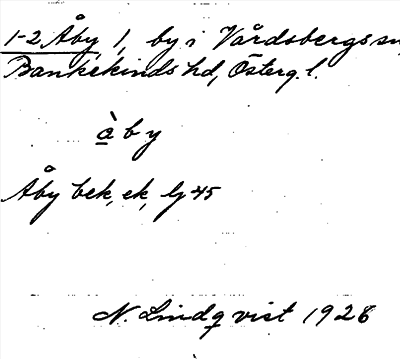 1-2 Åby 1, by i Vårdsbergs sn,
Bankekinds hd, Österg. l.
àby
Åby bek, ek, lj 45
N. Lindqvist 1926